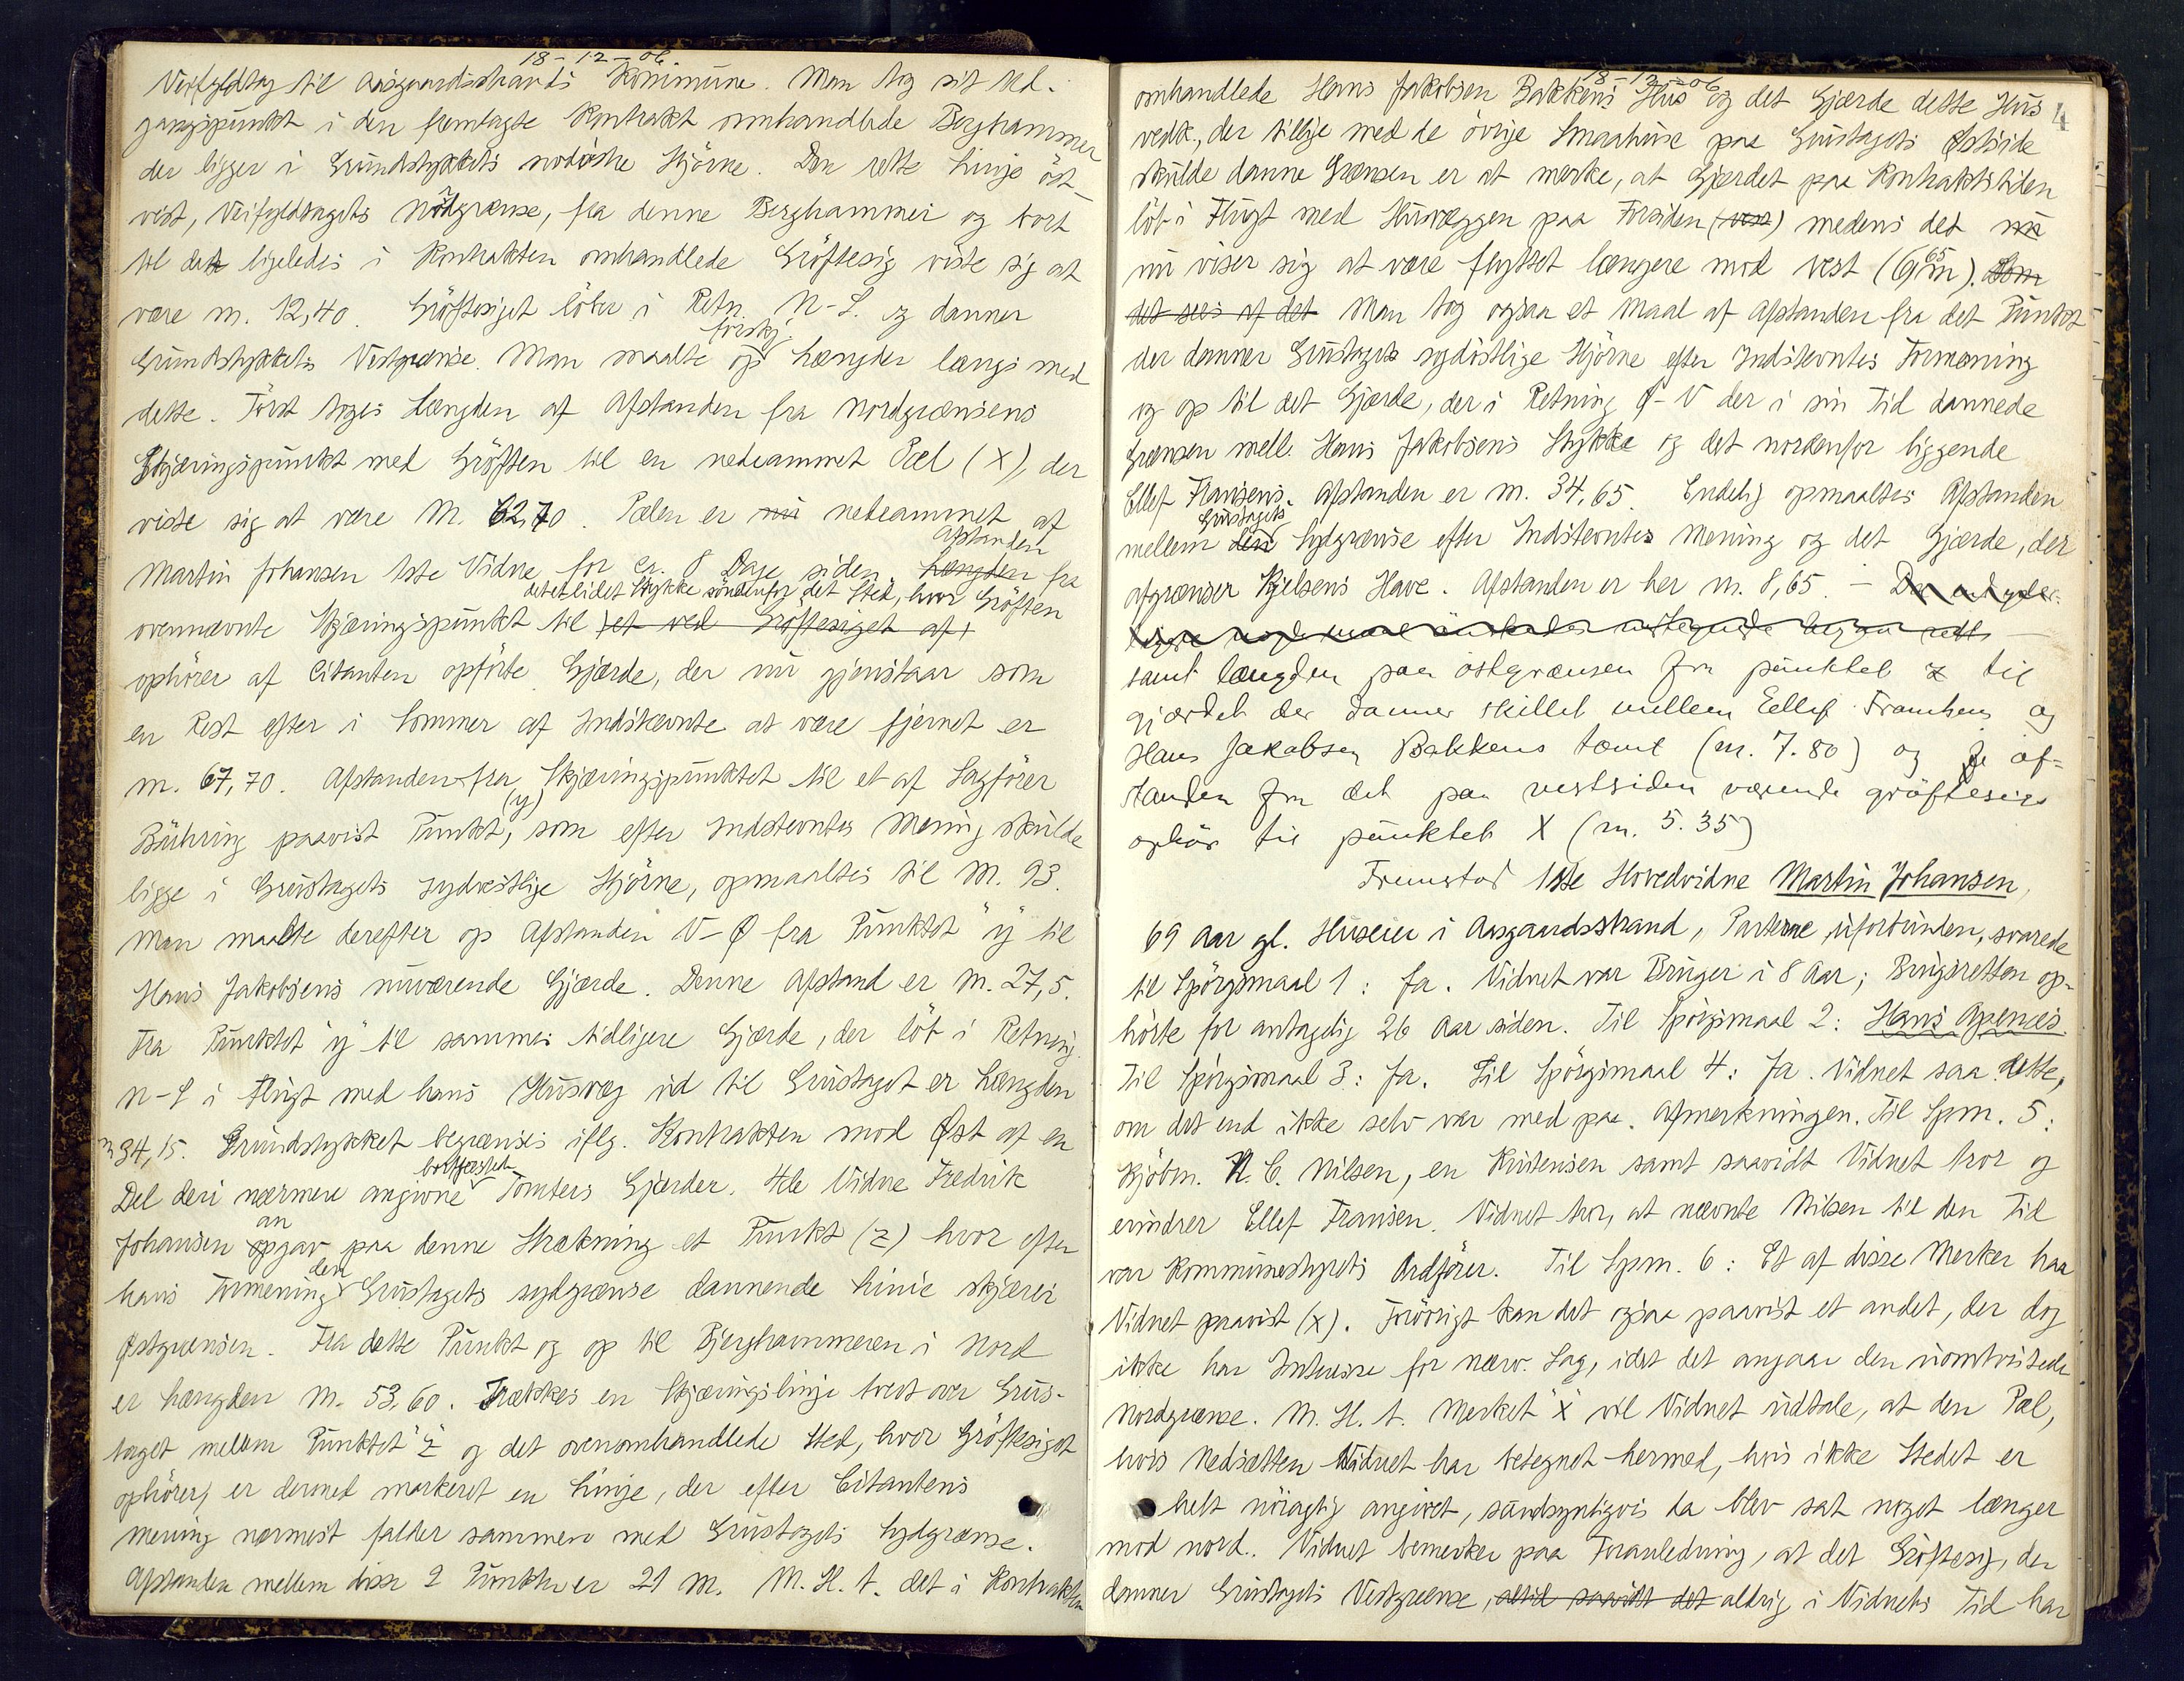 18-12-06.
Veifyldtag til Aasgaardsstrands Kommune. Man tog sit Ud-
gangspunkt i den fremlagte Kontrakt omhandlede Berghammer
der ligger i Grundstykkets nordöstre Hjörne. Den rette Linje öst-
vest, Veifyldtagets Nordgrænse, fra denne Berghammer og bort
til det ligeledes i Kontrakten omhandlede Gröftesig viste sig at
være m. 12,40. Gröftesiget löber i Retn. N-S. og danner
forskj.
Grundstykkets Vestgrænse. Man maalte op Længder langs med
dette. Först toges Længden af Afstanden fra Nordgrænsens
Skjæringspunkt med Gröften til en nedrammet Pæl (X), der
viste sig at være M. 62,70. Pælen er nu nedrammet af
Afstanden
Martin Johansen 1ste Vidne for ca. 8 Dage siden. Længden fra
det et lidet Stykke söndenfor det Sted, hvor Gröften
ovennævnte Skjæringspunkt til et ved Gröftesiget af
ophörer af Citanten opförte Gjærde, der nu gjenstaar som
en Rest efter i Sommer af Indstævnte at være fjernet er
m. 67,70. Afstanden fra Skjæringspunktet til et af Sagförer
(y)
Bühring paavist Punkt, som efter Indstevntes Mening skulde
ligge i Grustagets sydvestlige Hjörne, opmaaltes til M. 93.
Man maalte derefter op Afstanden V-Ø fra Punktet "y" til
Hans Jakobsens nuværende Gjærde. Denne Afstand er M. 27,5.
Fra Punktet "y" til sammes tidligere Gjærde, der löb i Retning
N-S i Flugt med hans Husvæg ud til Grustaget er Længden
m 34,15. Grundstykket begrænses iflg. Kontrakten mod Øst af en
bortfæstede
Del deri nærmere angivne Tomters Gjærder. 4de Vidne Fredrik
an
Johansen opgav paa denne Strækning et Punkt (z) hvor efter
den
hans Formening Grustagets sydgrænse dannende Linie skjærer
Østgrænsen. Fra dette Punkt og op til Bjerghammeren i Nord
er Længden M. 53,60. Trækkes en Skjæringslinje tvert over Grus-
taget mellem Punktet "z" og det ovenomhandlede Sted, hvor Gröftesiget
ophörer, er dermed markeret en Linje, der efter Citantens
mening nærmest falder sammen med Grustagets Sydgrænse.
Afstanden mellem disse 2 Punkter er 21 M. M.H.t. det i Kontrakten
18-12-06
4
omhandlede Hans Jakobsen Bakkens Hus og det Gjærde dette Hus
vedk., der tillige med de övrige Smaahuse paa Grustagets Østside
skulde danne Grænsen er at merke, at Gjærdet paa Kontraktstiden
löb i Flugt med Husvæggen paa Forsiden (vest) medens det nu
65
nu viser sig at være flyttet længere mod vest (6, m). Som
det sees af det Man tog ogsaa et Maal af Afstanden fra det Punkt
der danner Grustagets sydöstlige Hjörne efter Indstevntes Formening
og op til det Gjærde, der i Retning Ø-V der i sin Tid dannede
Grænsen mell. Hans Jakobsens Stykke og det nordenfor liggende
Ellef Fransens. Afstanden er m. 34,65. Endelig opmaaltes Afstanden
Grustagets
mellem den Sydgrænse efter Indstevntes Mening og det Gjærde, der
afgrænser Kjelsens Have. Afstanden er her m. 8,65. —
samt længden paa östgrænsen fra punktet z til
gjærdet der danner skillet mellem Ellef Franhens og
Hans Jakobsen Bakkens tomt (m. 7.80) og af-
standen fra det paa vestsiden værende gröftesigs
ophör til punktet X (m. 5.35)
Fremstod 1ste Hovedvidne Martin Johansen,
69 Aar gl. Huseier i Aasgaardsstrand, Parterne uforbunden, svarede
til Spörgsmaal 1: Ja. Vidnet var Bruger i 8 Aar; Brugsretten op-
hörte for antagelig 26 Aar siden. Til Spörgsmaal 2: Hans Apenæs.
Til Spörgsmaal 3: Ja. Til Spörgsmaal 4: Ja. Vidnet saa dette,
om det end ikke selv var med paa Afmerkningen. Til Spm. 5:
Kjöbm. N. C. Nilsen, en Kristensen samt saavidt Vidnet tror og
erindrer Ellef Fransen. Vidnet tror, at nævnte Nilsen til den Tid
var Kommunestyrets Ordförer. Til Spm. 6: Et af disse Merker har
Vidnet paavist (X). Forövrigt kan det ogsaa paavist et andet, der dog
ikke har Interesse for nærv. Sag, idet det angaar den uomtvistede
Nordgrænse. M.H.t. Merket "X" vil Vidnet udtale, at den Pæl,
hvis Nedsætten Vidnet har betegnet hermed, hvis ikke Stedet er
helt nöiagtig angivet, sandsynligvis da blev sat noget længer
mod nord. Vidnet bemerker paa Foranledning, at det Gröftesig, der
danner Grustagets Vestgrænse, altid saavidt det aldrig i Vidnets Tid har